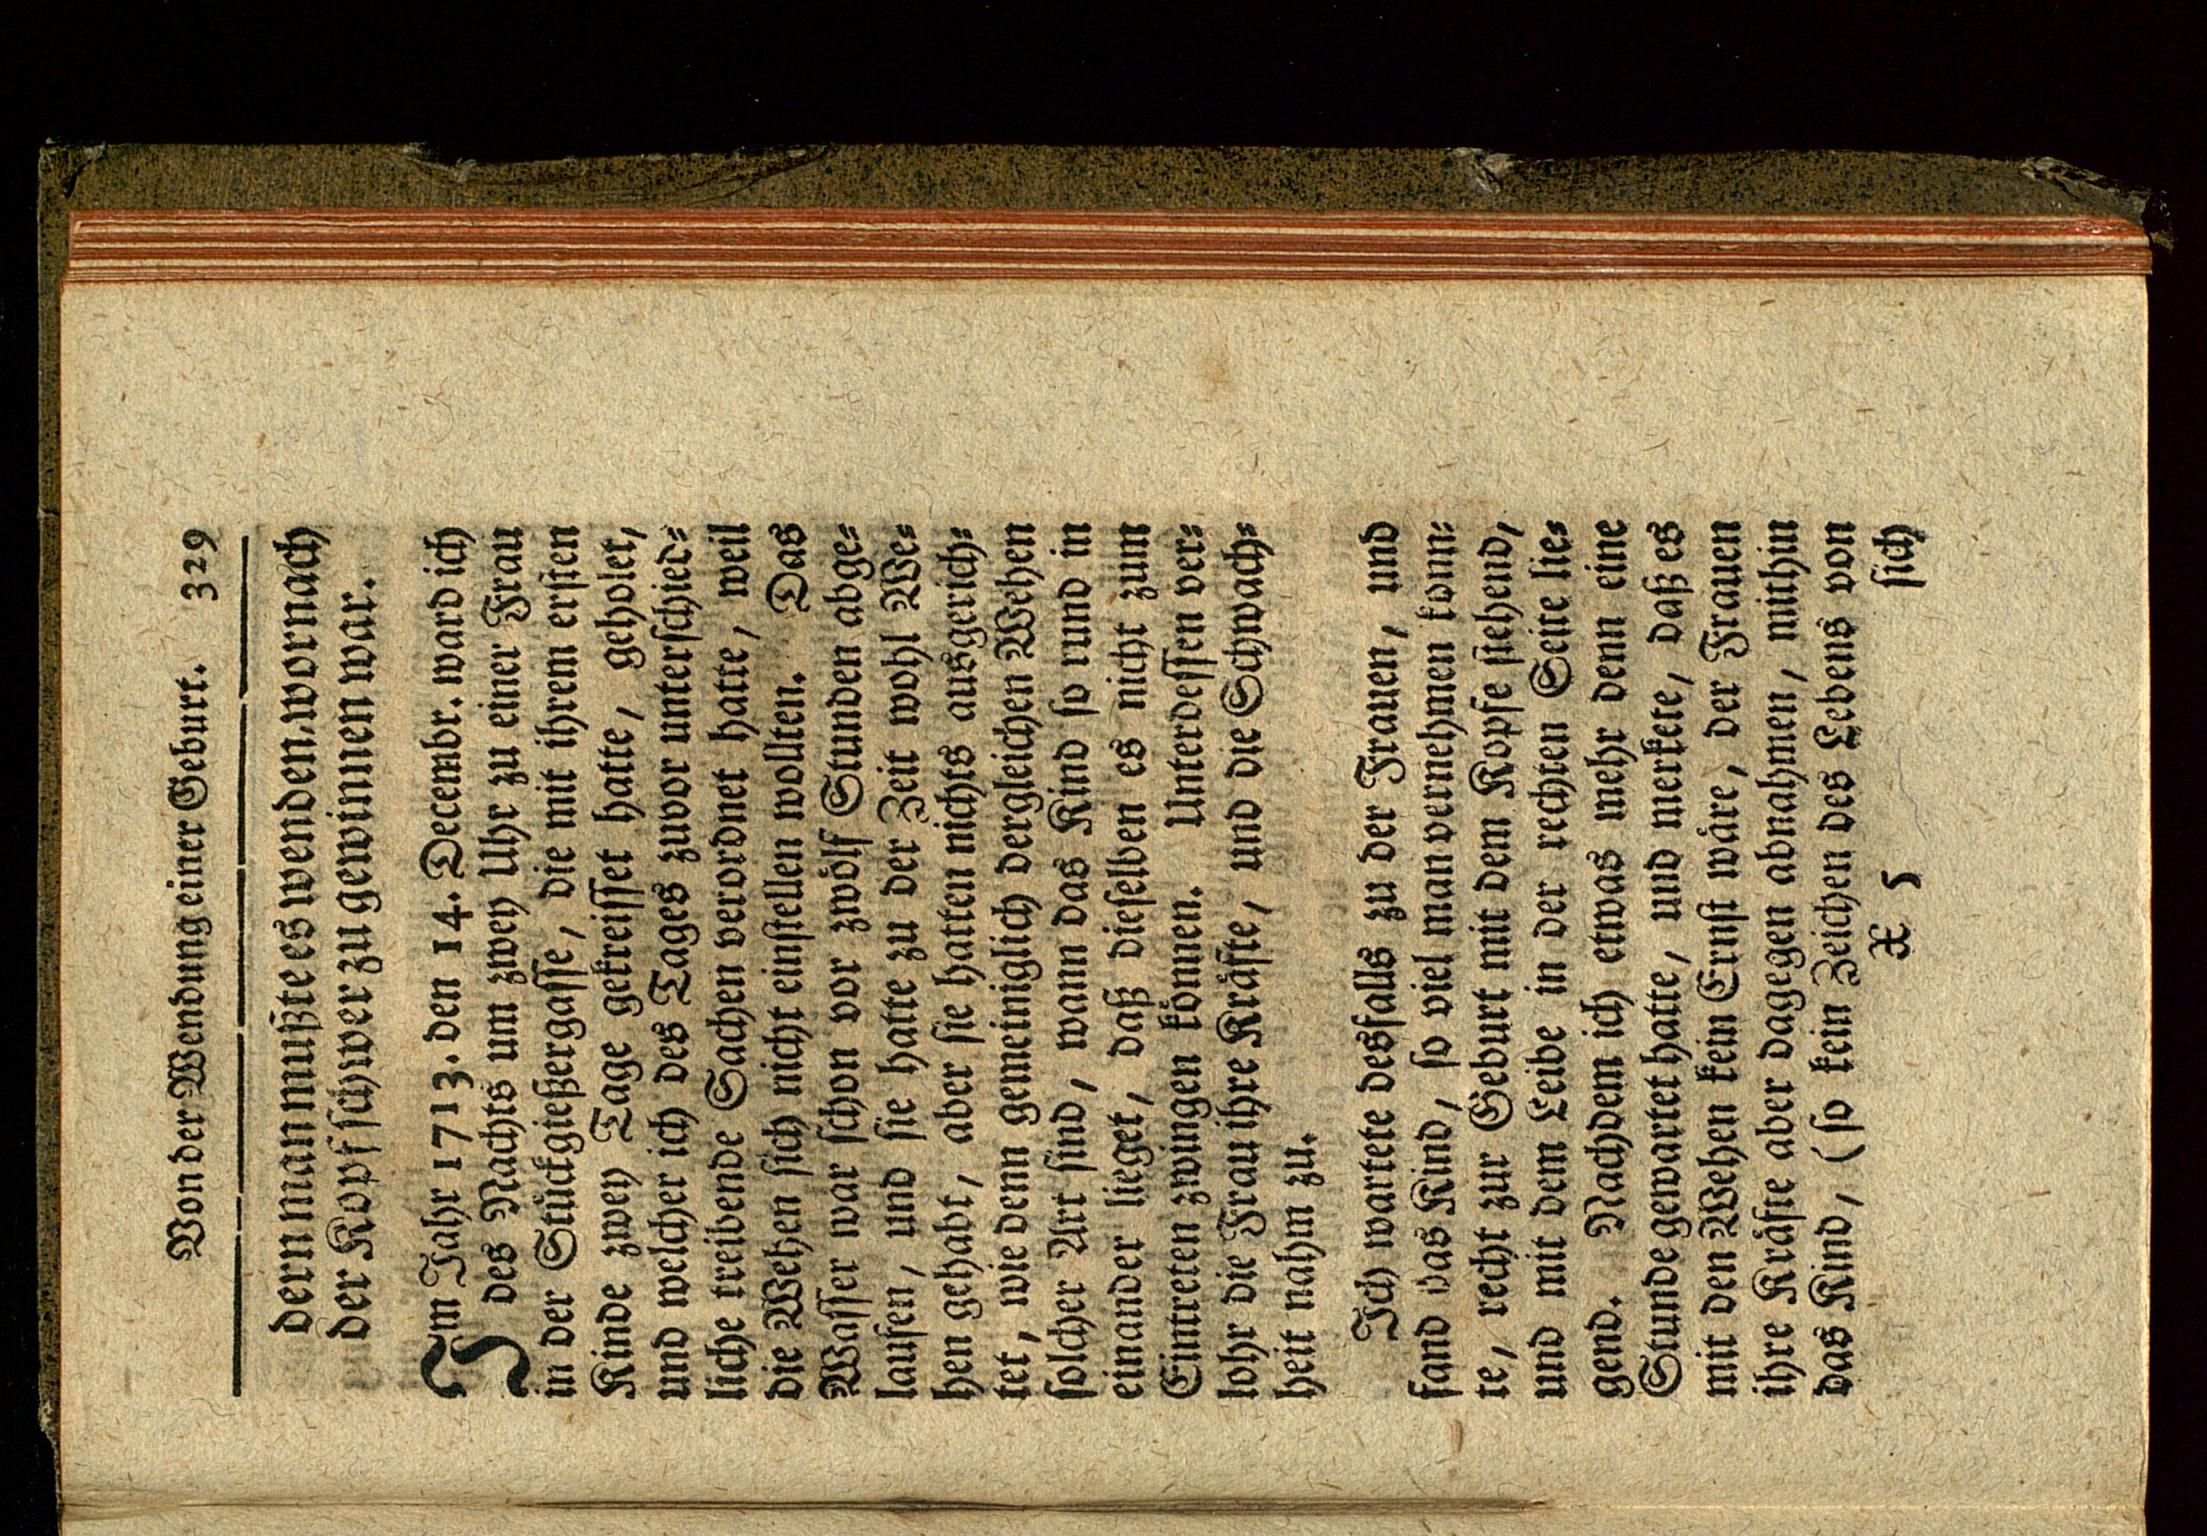 Von der Wendung einer Geburt. 329
dern man mußte es wenden, wornach
der Kopf schwer zu gewinnen war.
Im Jahr 1713. den 14. Decembr. ward ich
des Nachts um zwey Uhr zu einer Frau
in der Stückgießergasse, die mit ihrem ersten
Kinde zwey Tage gekreisset hatte, geholet,
und welcher ich des Tages zuvor unterschied-
liche treibende Sachen verordnet hatte, weil
die Wehen sich nicht einstellen wollten. Das
Wasser war schon vor zwölf Stunden abge-
laufen, und sie hatte zu der Zeit wohl We-
hen gehabt, aber sie hatten nichts ausgerich-
tet, wie denn gemeiniglich dergleichen Wehen
solcher Art sind, wann das Kind so rund in
einander lieget, daß dieselben es nicht zum
Eintreten zwingen können. Unterdessen ver-
lohr die Frau ihre Kräfte, und die Schwach-
heit nahm zu.
Ich wartete desfalls zu der Frauen, und
fand das Kind, so viel man vernehmen konn-
te, recht zur Geburt mit dem Kopfe stehend,
und mit dem Leibe in der rechten Seite lie-
gend. Nachdem ich etwas mehr denn eine
Stunde gewartet hatte, und merkete, daß es
mit den Wehen kein Ernst wäre, der Frauen
ihre Kräfte aber dagegen abnahmen, mithin
das Kind, (so kein Zeichen des Lebens von
X 5 sich